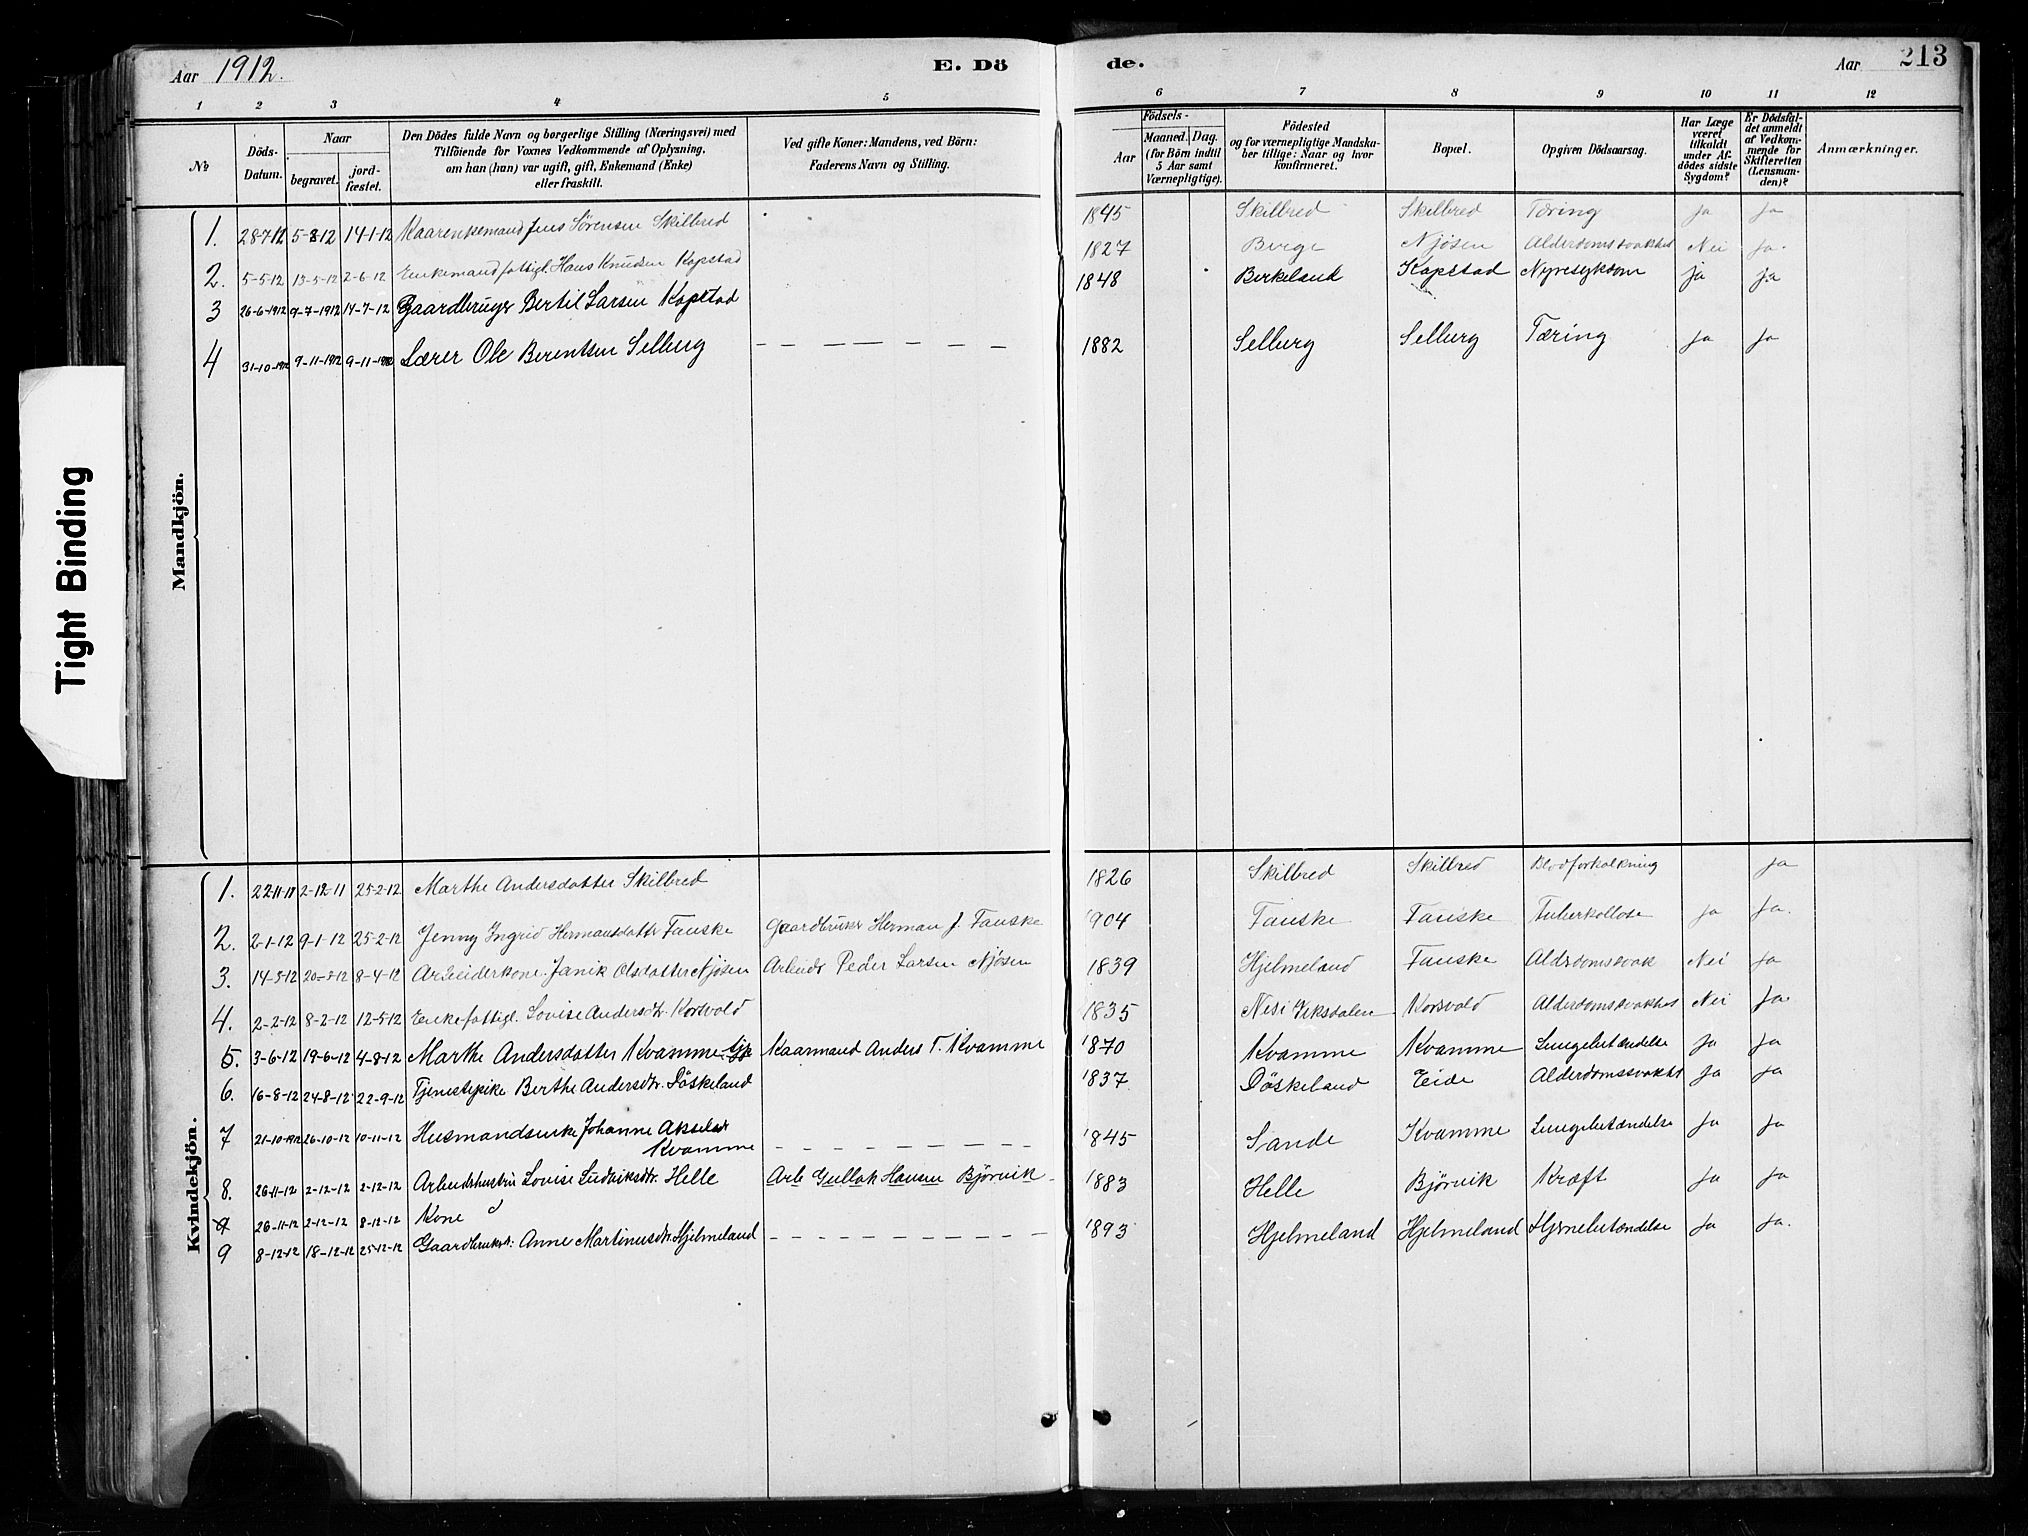 Aar 1912.
E. Dö
de.
Aar
213
1 2 3 4 5 6 7 8 9 10 11 12
№
Döds-Datum.
Naar
begravet.
jord-fæstet.
Den Dödes fulde Navn og borgerlige Stilling (Næringsvei) med
Tilföiende for Voxnes Vedkommende af Oplysning,
om han (hun) var ugift, gift, Enkemand (Enke)
eller fraskilt.
Ved gifte Koner: Mandens, ved Börn:
Faderens Navn og Stilling.
Födsels-
Aar
Maaned. Dag.
(for Börn indtil
5 Aar samt
Værnepligtige).
Födested
og for værnepligtige Mandska-
ber tillige: Naar og hvor
konfirmeret.
Bopæl.
Opgiven Dödsaarsag.
Har Læge
været
tilkaldt
under Af-
dödes sidste
Sygdom?
Er Dödsfal-
det anmeldt
af Vedkom-
mende for
Skifteretten
(Lensman-
den)?
Anmærkninger.
Mandkjön.
1. 28-7-12 5-8-12 14-1-12 Kaarenkemand Jens Sörensen Skilbred 1845 Skilbred Skilbred Tæring ja ja
2. 5-5-12 13-5-12 2-6-12 Enkemand fattigl. Hans Knudsen Kopstad 1827 Berge Njøsen Alderdomssvakhet Nei Ja.
3 26-6-1912 9-7-1912 14-7-12 Gaardbruger Bertil Larsen Kopstad 1848 Birkeland Kopstad Nyresykdom ja ja
4 31-10-1912 9-11-1912 9-11-1912 Lærer Ole Berentsen Selburg 1882 Selburg Selburg Tæring ja ja
Tight Binding
Kvindekjön.
1. 22-11-11 2-12-11 25-2-12 Marthe Andersdatter Skilbred 1826 Skilbred Skilbred Blodforkalkning ja
2. 2-1-12 9-1-12 25-2-12 Jenny Ingrid Hermansdatter Fauske Gaardbruker Herman J. Fauske 1904 Fauske Fauske Tuberkollose ja Ja.
3. 14-3-12 20-3-12 8-4-12 Arbeiderkone Janik Olsdatter Njøsen Arbeider Peder Larsen Njøsen 1839 Hjelmeland Fauske Alderdomssvak Nei Ja
4. 2-2-12 8-2-12 12-5-12 Enke fattigl. Lovise Andersd. Korsvold 1835 Nes i Viksdalen Korsvold Alderdomssvakhet Nei Ja.
5. 3-6-12 19-6-12 4-8-12 Marthe Andersdatter Kvamme Kaarmand Anders T. Kvamme 1870 Kvamme Kvamme Lungebetændelse Ja Ja
6. 16-8-12 24-8-12 22-9-12 Tjenestepike Berthe Andersdtr. Döskeland 1837 Döskeland Eide Alderdomssvakht Ja Ja
7 21-10-1912 26-10-12 10-11-12 Husmandsenke Johanne Akselsdr
Kvamme 1845 Sande Kvamme Lungebetændelse Ja Ja
8. 26-11-12 2-12-12 2-12-12 Arbeidshustru Lovise Ludviksdtr. Helle Arb Gullak Hansen Bjørvik 1883 Helle Bjørvik Kræft Ja Ja
9 26-11-12 2-12-12 8-12-12 Kone
9 8-12-12 18-12-12 25-12-12 Gaardbrukdt: Anne Martinusdtr. Hjelmeland 1893 Hjelmeland Hjelmeland Hjernebetændelse Ja Ja.